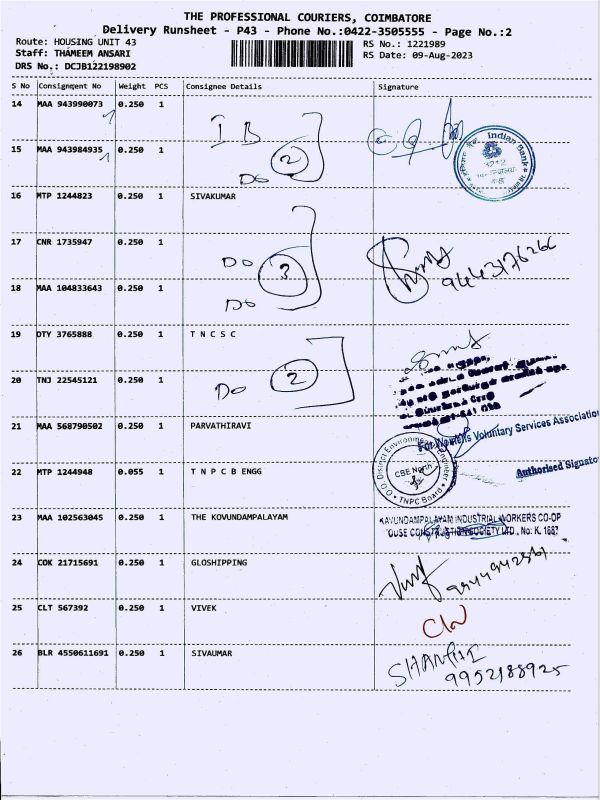 THE PROFESSIONAL COURIERS, COIMBATORE
Delivery Runsheet - P43 - Phone No.:0422-3505555 - Page No.:2
Route: HOUSING UNIT 43
Staff: THAMEEM ANSARI
DRS No.: DCJB122198902
RS No.: 1221989
RS Date: 09-Aug-2023
S No Consignment No Weight PCS Consignee Details Signature
14 MAA 943990073 0.250 1 IB
15 MAA 943984935 0.250 1 Do 2
Indian Bank
16 MTP 1244823 0.250 1 SIVAKUMAR
17 CNR 1735947 0.250 1 Do 3
9443176266
18 MAA 104833643 0.250 1 Do
19 DTY 3765888 0.250 1 T N C S C
20 TNJ 22545121 0.250 1 Do 2
21 MAA 568790502 0.250 1 PARVATHIRAVI
For Women's Voluntary Services Association
Authorised Signato
22 MTP 1244948 0.055 1 T N P C B ENGG
O/O District Environmental Engineer
CBE North
TNPC Board
23 MAA 102563045 0.250 1 THE KOVUNDAMPALAYAM
KAVUNDAMPALAYAM INDUSTRIAL WORKERS CO-OP
OUSE CONSTRUCTION SOCIETY LTD., No: K. 1687
24 COK 21715691 0.250 1 GLOSHIPPING
25 CLT 567392 0.250 1 VIVEK
26 BLR 4550611691 0.250 1 SIVAUMAR
SHANTHI
9952188925